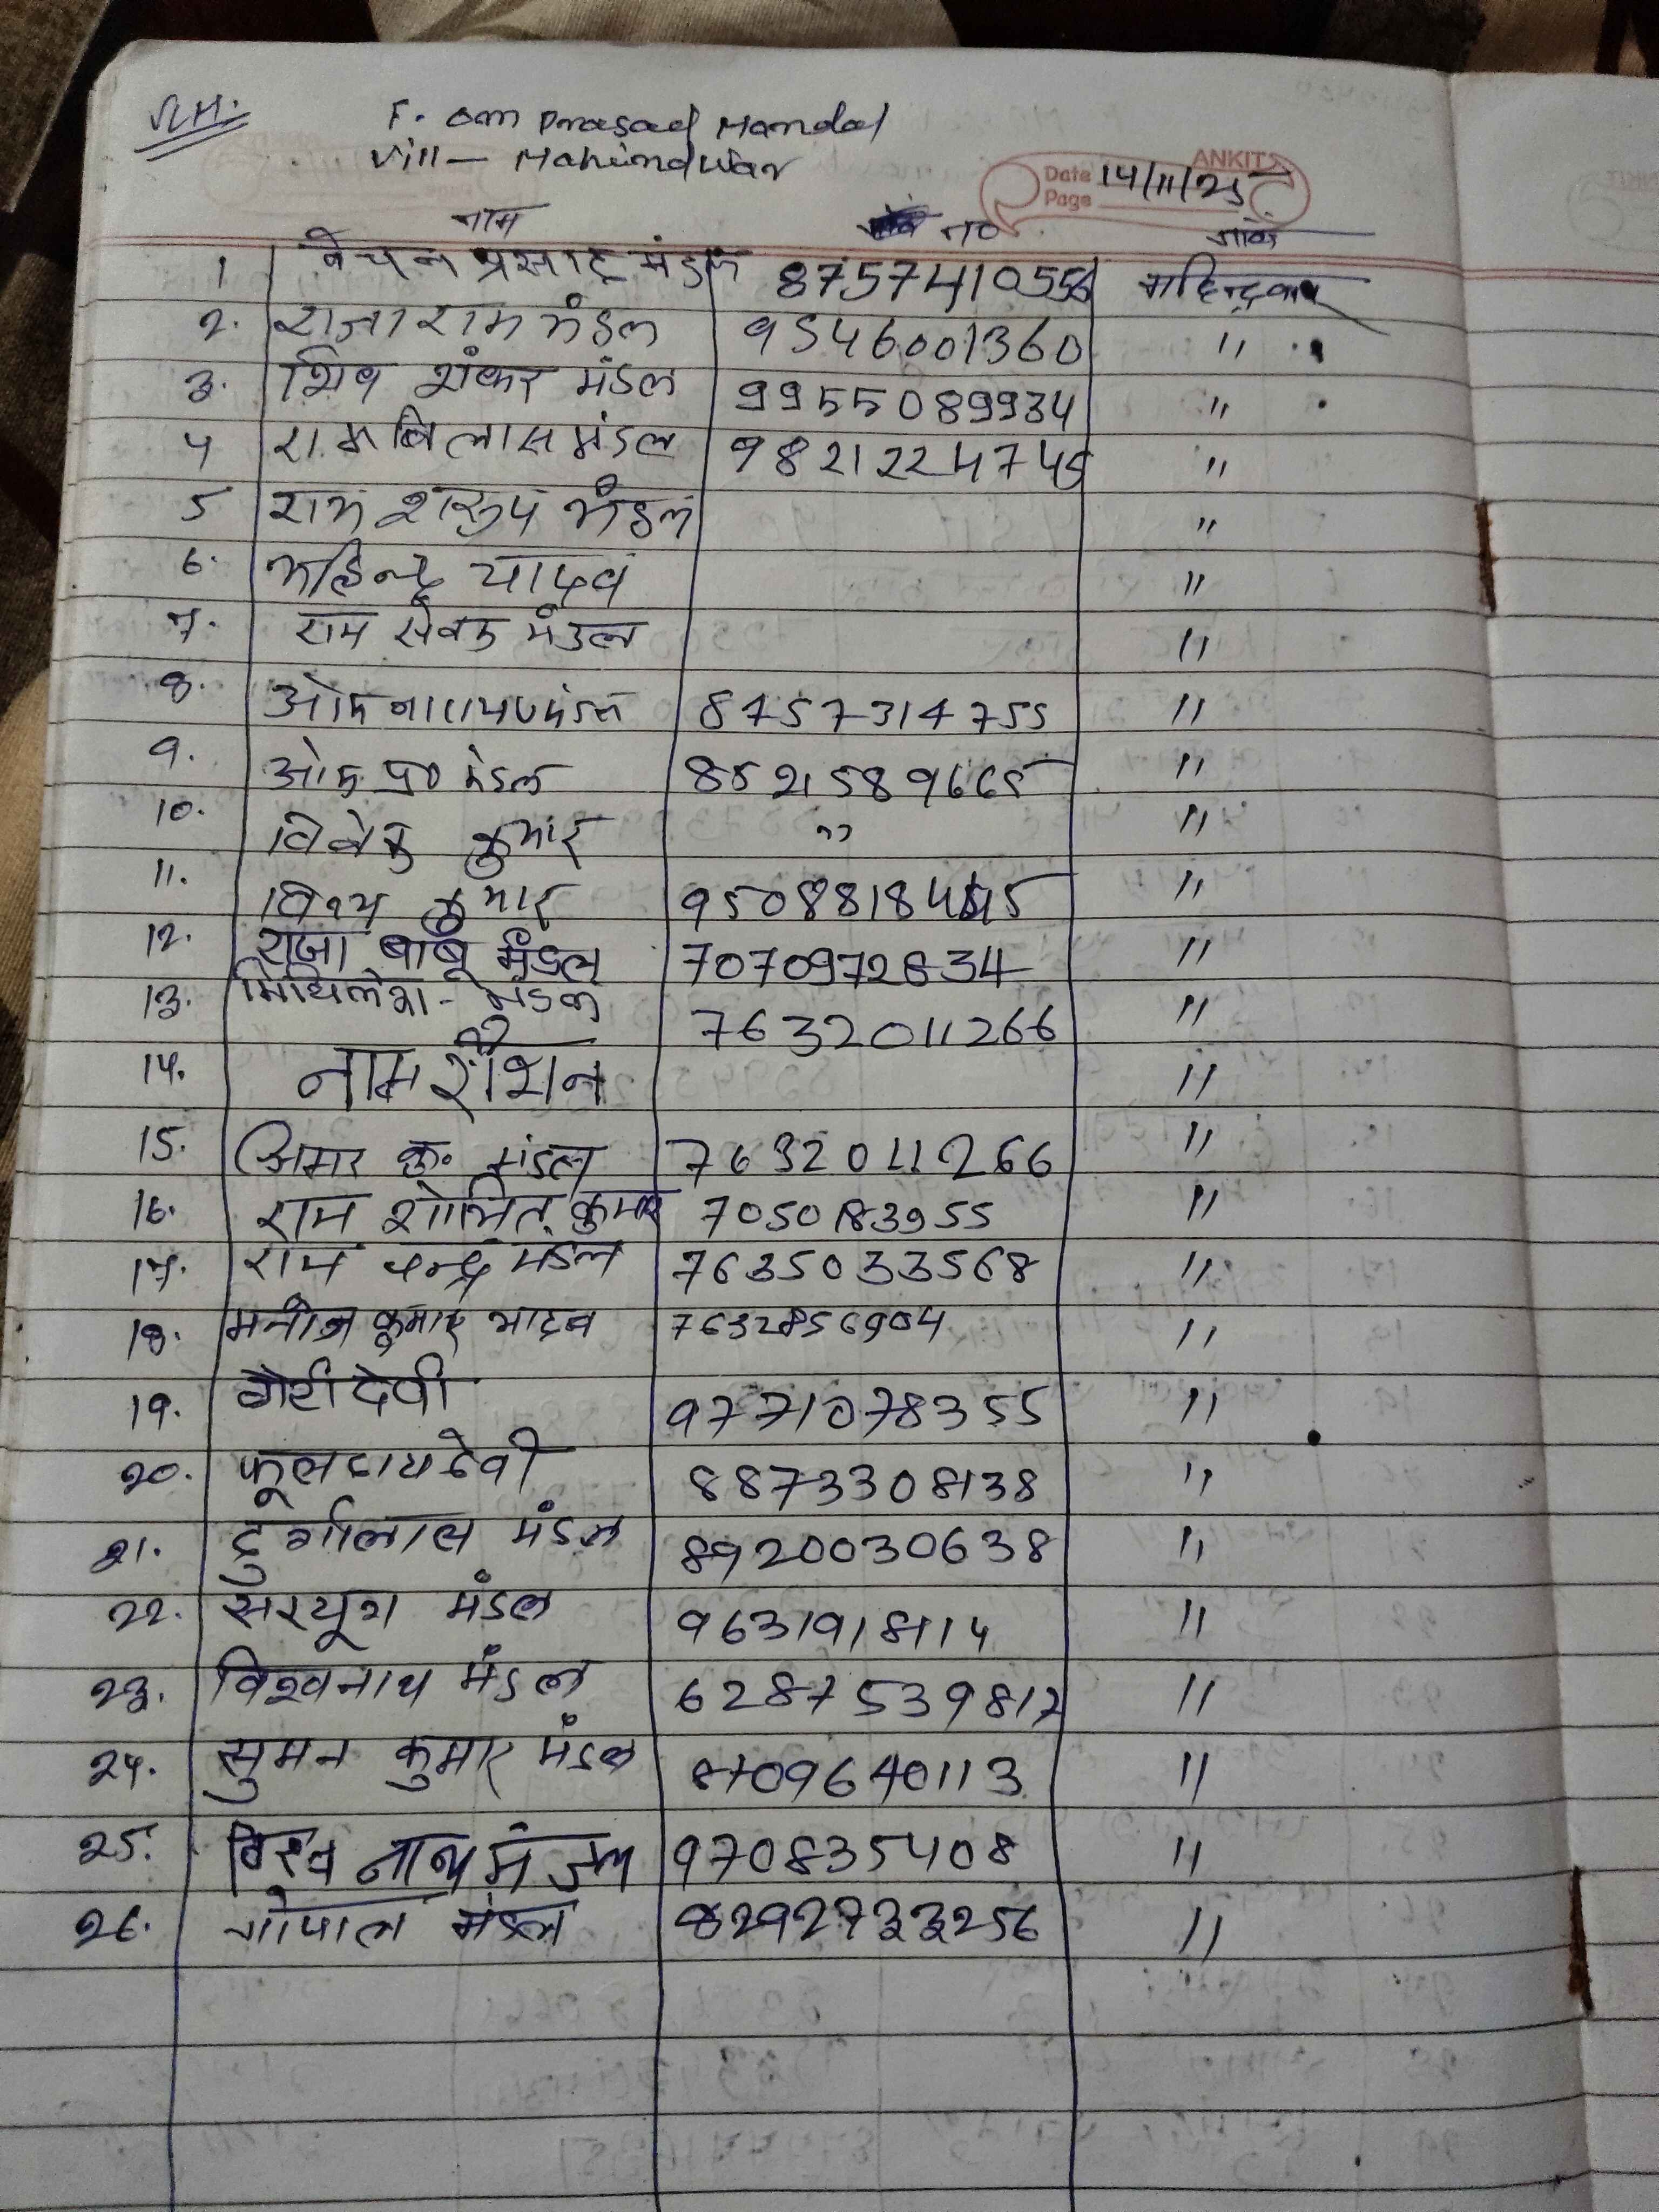 F. Om Prasad Mandal
Vill - Mahindwar
ANKIT
Date 14/11/25
Page
नाम no
1 बेचन प्रसाद मंडल महिन्द्रवार
2. राजा राम मंडल 9546001360 "
3. शिव शंकर मंडल 9955089934 "
4 राम विलास मंडल "
5 राम शरूप मंडल "
6. महिन्द्र यादव "
7. राम सेवक मंडल "
8. ओम नारायण मंडल 8757314755 "
9. ओम प्र० मंडल 8521589665 "
10. विवेक कुमार " "
11. कुमार "
12. राजा बाबू मंडल "
13. मिथिलेश - मंडल 7632011266 "
14. नाम रौशन "
15. अमर कु० मंडल 7632011266 "
16. राम शोभित कुमार 7050183955 "
17. राम चन्द्र मंडल 7635033568 "
18. मनोज कुमार यादव 7632856904 "
19. देवी 9771078355 "
20. फूलदाय देवी 8873308138 "
21. दुर्गालाल मंडल 8920030638 "
22. सरयूग मंडल 9631918114 "
23. विश्वनाथ मंडल 6287539812 "
24. सुमन कुमार मंडल 8709640113 "
25. विश्व नाथ मंडल 970835408 "
26. गोपाल मंडल 8292733256 "